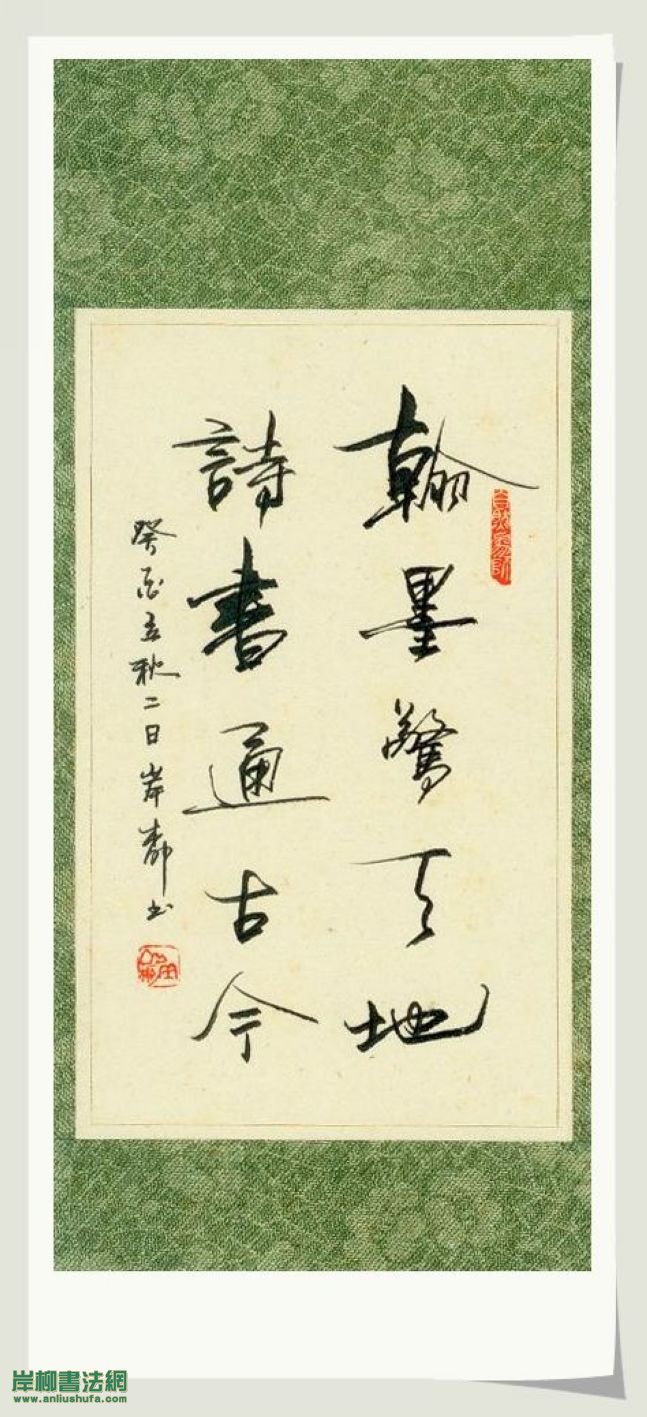 翰墨驚天地
詩書通古今
癸酉孟秋二日岸柳书
岸柳書法網
www.anliushufa.com